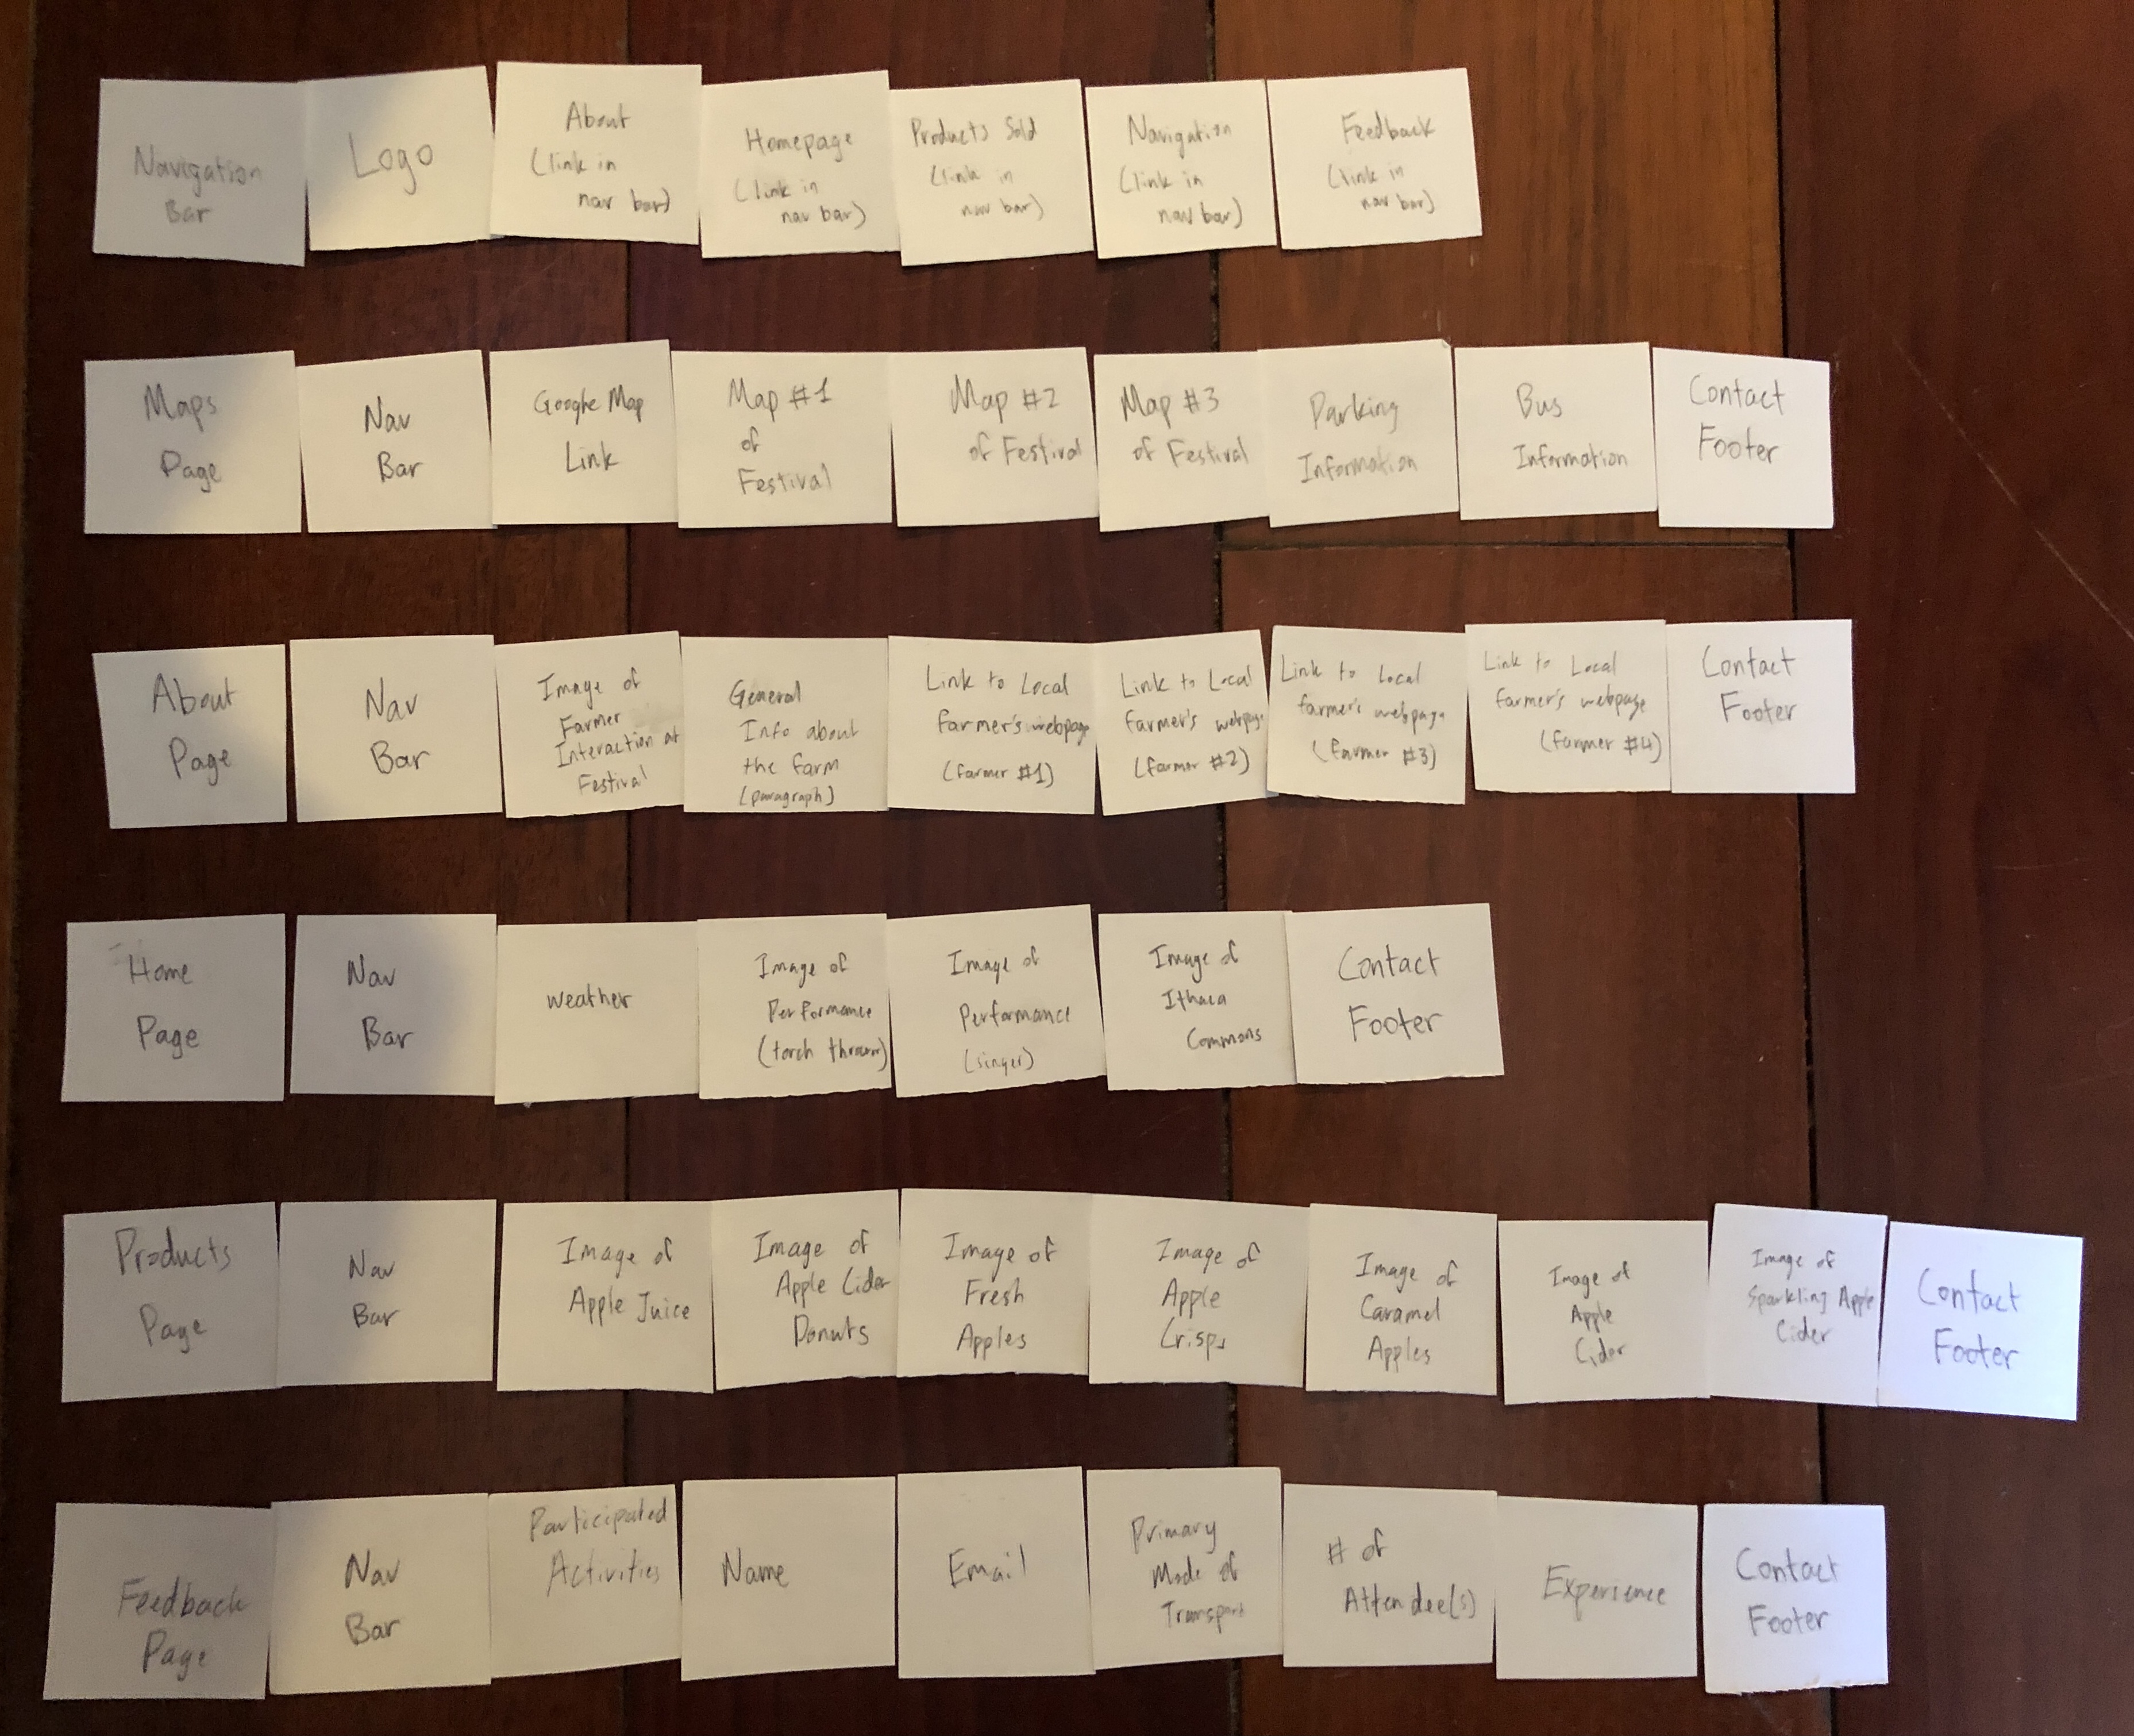 Navigation
Bar
Logo
About
(link in
nav bar)
Homepage
(link in
nav bar)
Products Sold
(link in
nav bar)
Navigation
(link in
nav bar)
Feedback
(link in
nav bar)
Maps
Page
Nav
Bar
Google Map
Link
Map #1
of
Festival
Map #2
of Festival
Map #3
of Festival
Parking
Information
Bus
Information
Contact
Footer
About
Page
Nav
Bar
Image of
Farmer
Interaction at
Festival
General
Info about
the farm
(paragraph)
Link to Local
farmer's webpage
(farmer #1)
Link to Local
farmer's webpage
(farmer #2)
Link to Local
farmer's webpage
(farmer #3)
Link to Local
farmer's webpage
(farmer #4)
Contact
Footer
Home
Page
Nav
Bar
weather
Image of
Performance
(torch thrower)
Image of
Performance
(singer)
Image of
Ithaca
Commons
Contact
Footer
Products
Page
Nav
Bar
Image of
Apple Juice
Image of
Apple Cider
Donuts
Image of
Fresh
Apples
Image of
Apple
Crisps
Image of
Caramel
Apples
Image of
Apple
Cider
Image of
Sparkling Apple
Cider
Contact
Footer
Feedback
Page
Nav
Bar
Participated
Activities
Name
Email
Primary
Mode of
Transport
# of
Attendee(s)
Experience
Contact
Footer